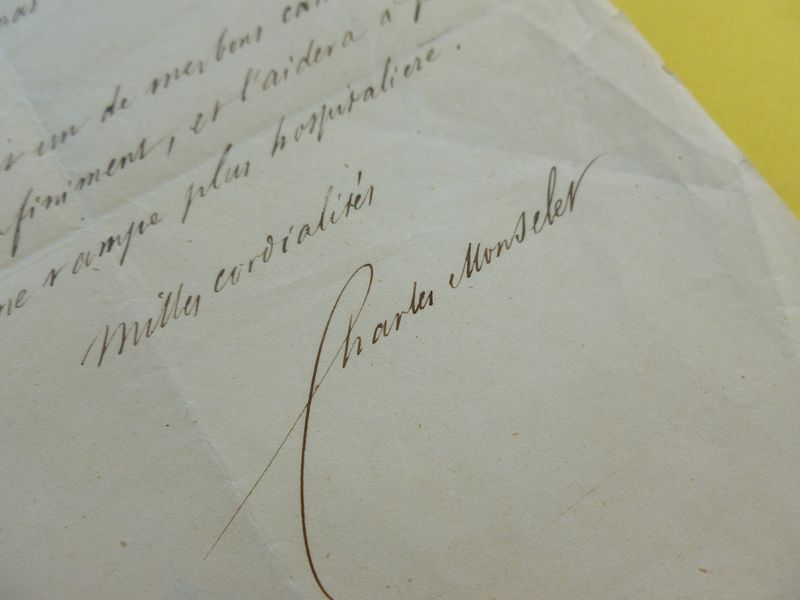 un de mes bons
finiment, et l'aidera à
rampe plus hospitalière.
Milles cordialités
Charles Monselet